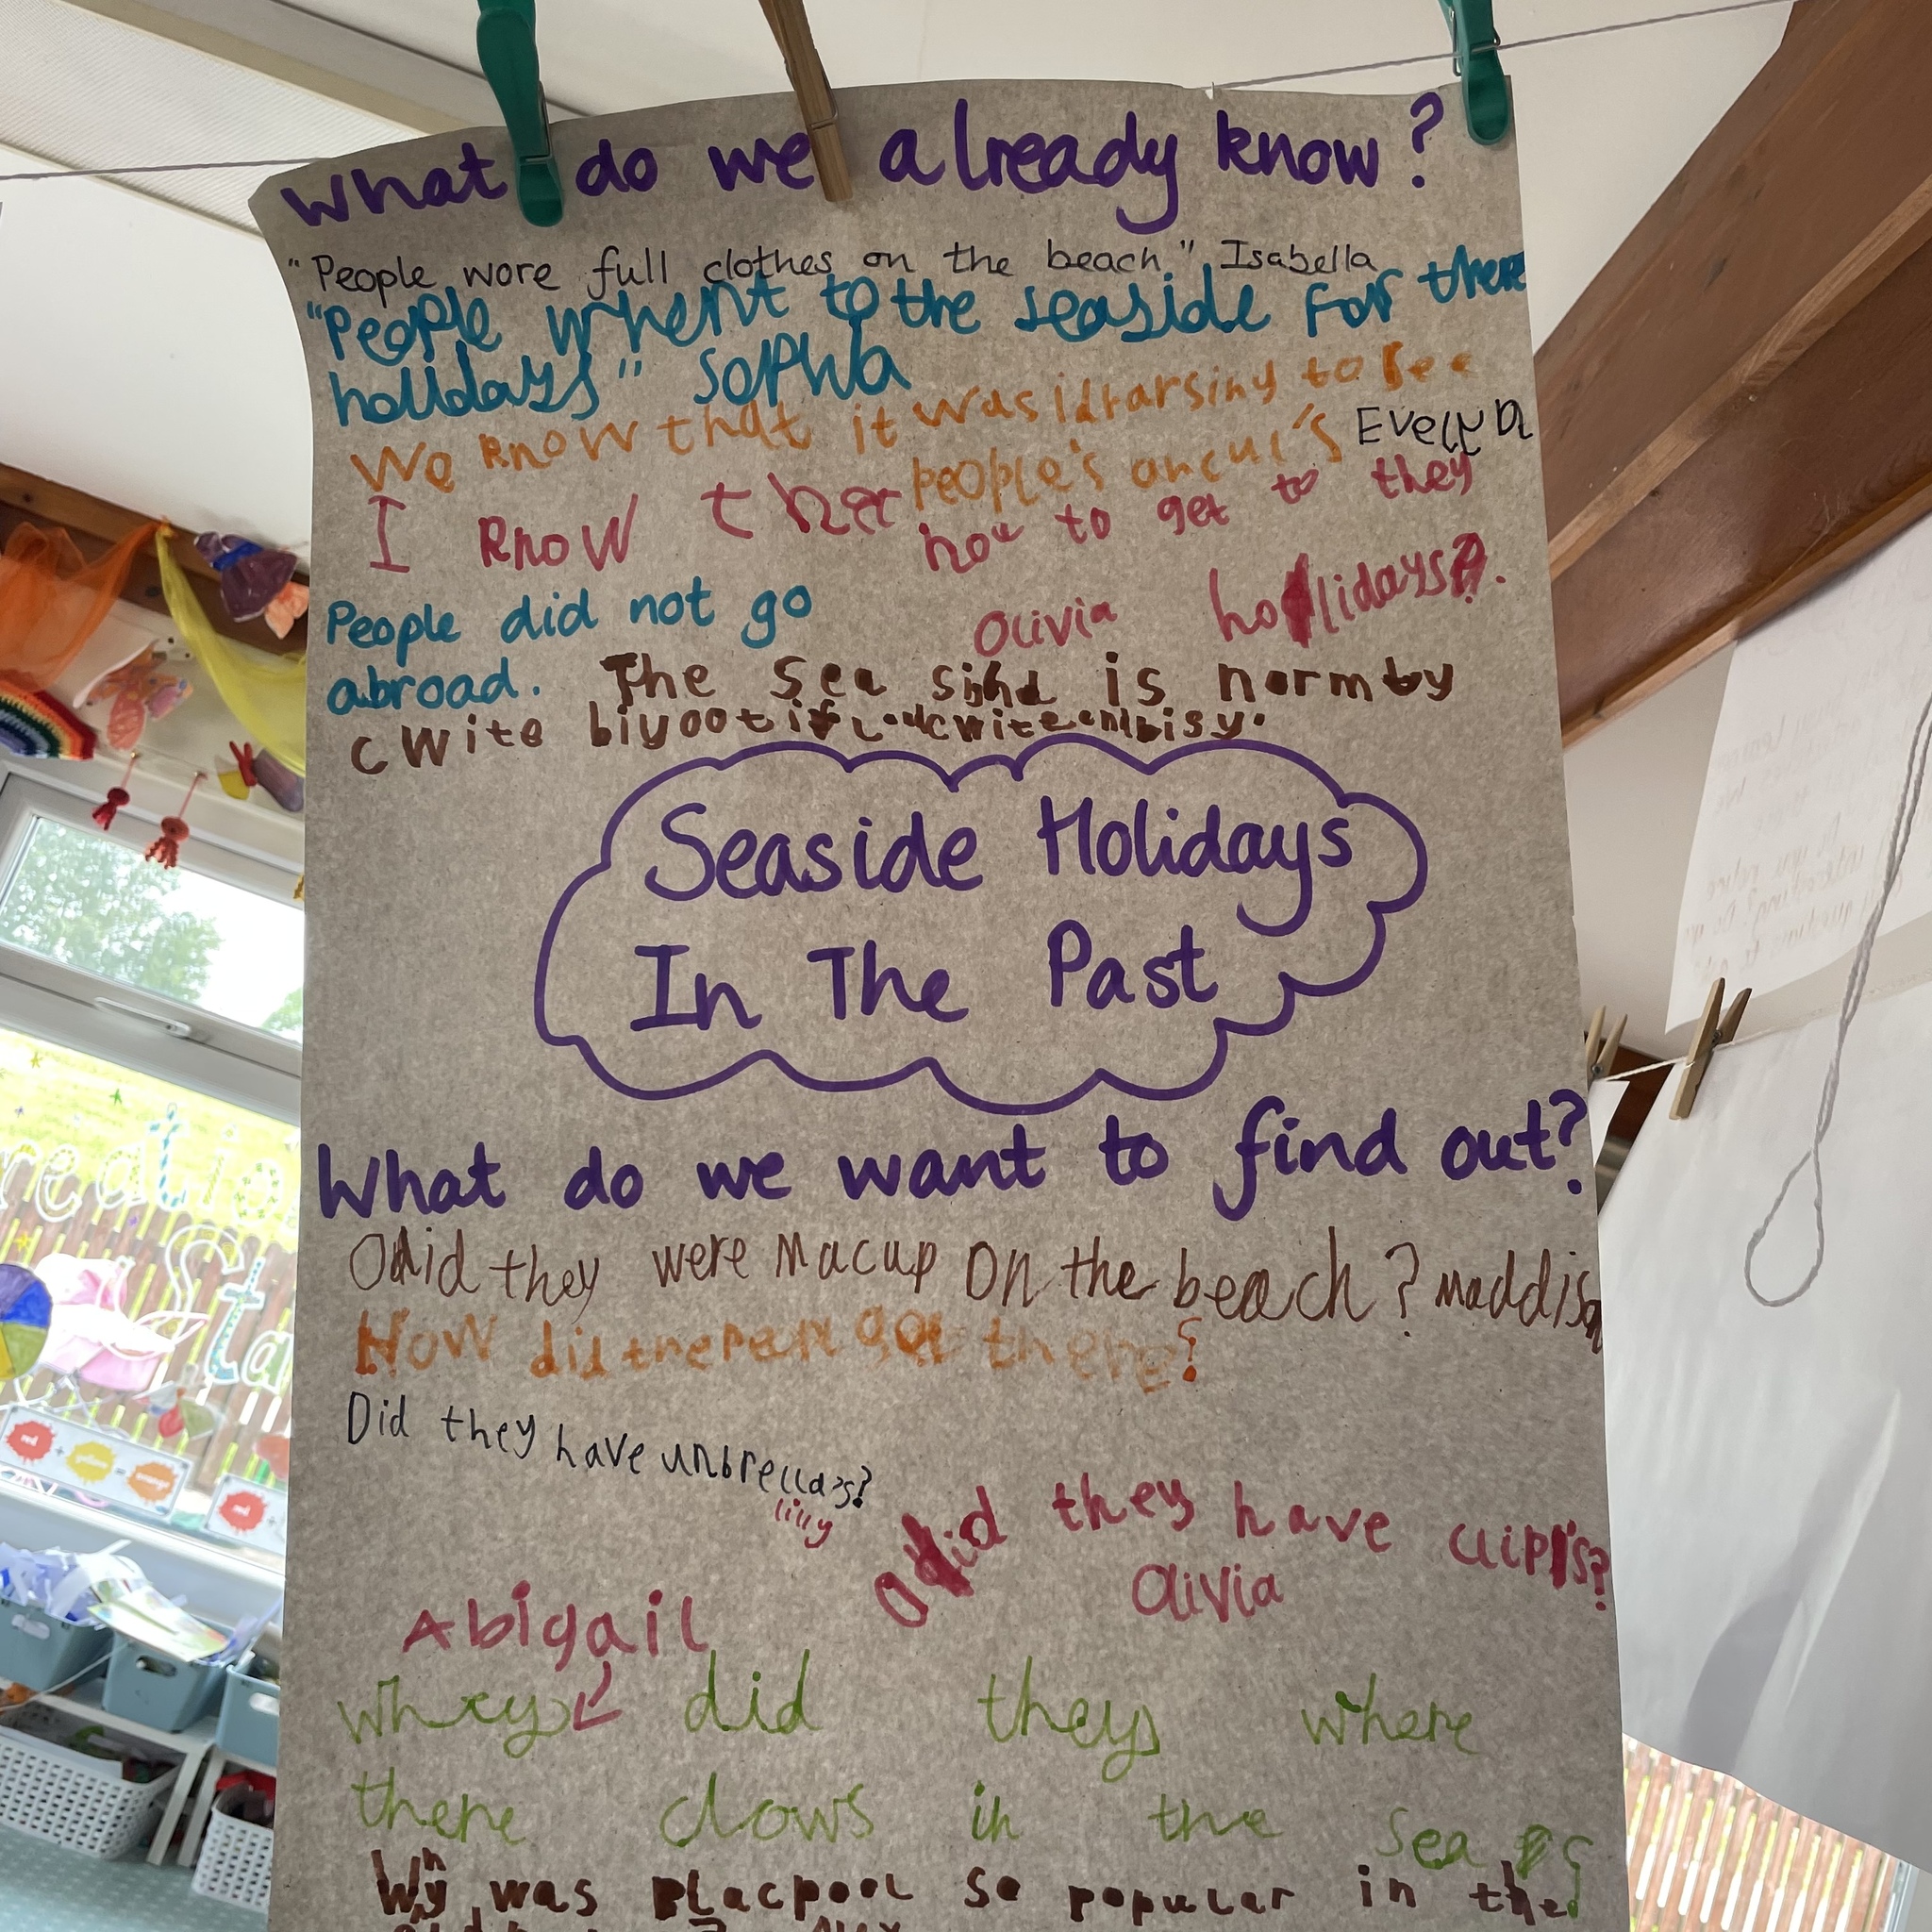 What do we already know?
"People wore full clothes on the beach." Isabella
"People whent to the seaside for there
holldays" Sophia
We know that it was idrarsing to see
people's ancul's Evelyn
I know that how to get to they
hollidays?.
Olivia
People did not go
abroad.
The Sea sind is normby
cwite biyootifl cwite bisy.
Seaside Holidays
In The Past
What do we want to find out?
did they were macup on the beach? Maddison
How did the get there?
Did they have unbrella's?
lilly
did they have clips?
Olivia
Abigail
whey did they where
there clows in the sea
Why was blacpool so popular in the
red
yellow
orange
red